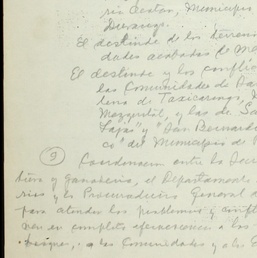 rio Ocotán, Municipio
Durango.
El deslinde de los terrenos
dades acabadas de Me
El deslinde y los conflic
las Comunidades de Sa
leno de Taxicaringa,
Mezquital, y las de Sa
Lajas" y "San Bernardi
co" del Municipio de
2
Coordinación entre la Secr
tura y Ganadería, el Departamento
rios y la Procuraduría General d
para atender los problemas y conflic
nen en completa efervescencia a los
bosques, a las Comunidades y a los E